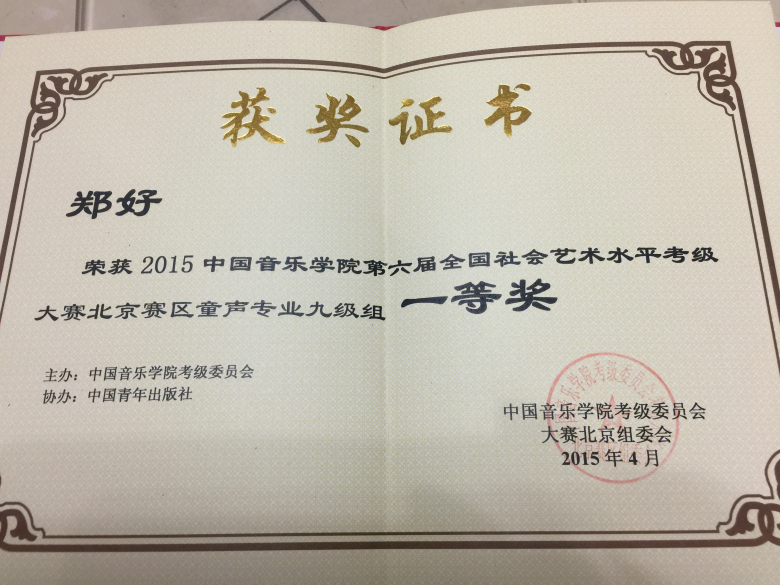 获奖证书
郑好
荣获2015中国音乐学院第六届全国社会艺术水平考级
大赛北京赛区童声专业九级组 一等奖
主办：中国音乐学院考级委员会
协办：中国青年出版社
中国音乐学院考级委员会
大赛北京组委会
2015年4月